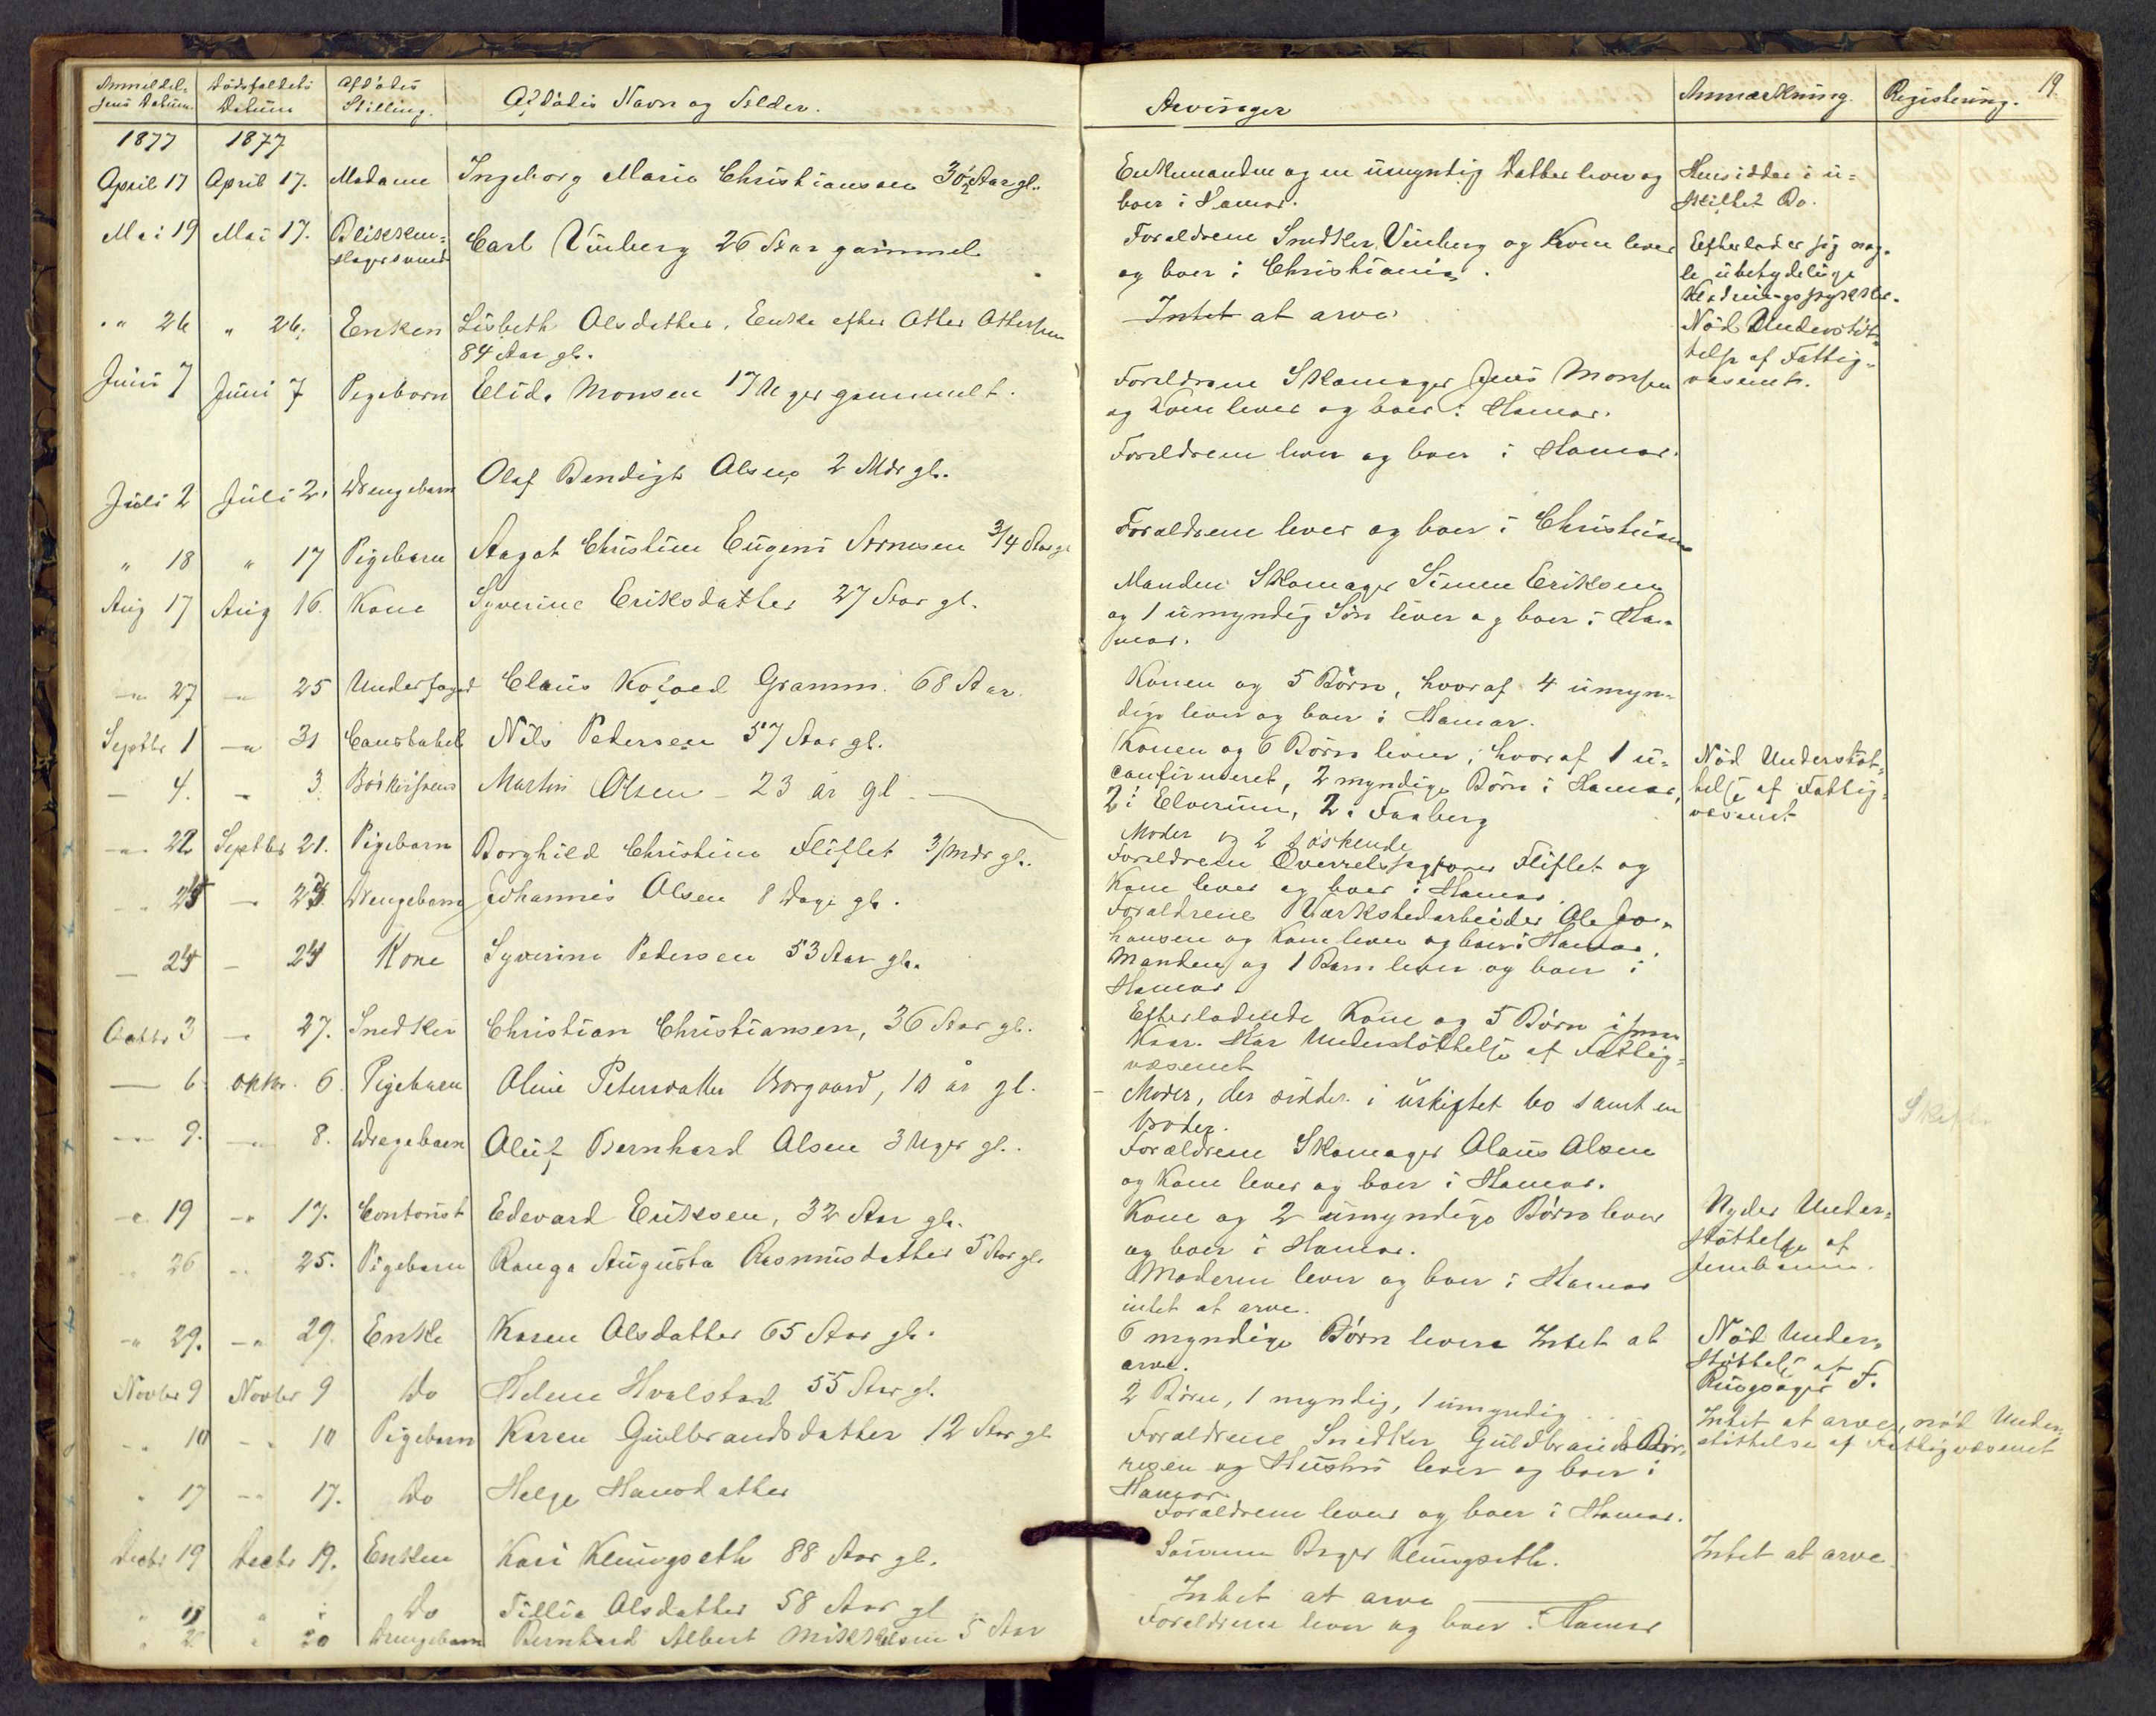 Anmeldel-
sens Datum.
Dödsfaldets
Datum
Afdödes
Stilling.
Afdödes Navn og Alder.
1877 1877
April 17 April 17. Madame Ingeborg Marie Christiansen 30½ Aar gl.
Mai 19 Mai 17. Blikken-
slagersvend
Carl Vinberg 26 Aar gammel
" 26 " 26. Enken Lisbeth Olsdatter, Enke efter Otter Ottersen
84 Aar gl.
Juni 7 Juni 7 Pigebarn Elida Monsen 17 Uger gammelt.
Juli 2 Juli 2. Drengebarn Olaf Bendigt Olsen 2 Mdr gl.
" 18 " 17 Pigebarn Aagot Christine Eugeni Arnesen 3/4 Aar gl
Aug 17 Aug 16. Kone Syverine Eriksdatter 27 Aar gl.
-"- 27 -"- 25 Underfoged Claus Kofoed Gramm. 68 Aar.
Septbr 1 -"- 31 Constabel Nils Pedersen 57 Aar gl.
- 4. - 3. Martin Olsen - 23 år gl -
-"- 22 Septbr 21. Pigebarn Borghild Christine Fliflet 3/Mdr gl.
Drengebarn Johannes Olsen 8 Dage gl.
Kone Syverine Pedersen 53 Aar gl.
Octbr 3 - 27. Snedker Christian Christiansen, 36 Aar gl.
- 6. oktbr. 6. Pigebarn Oline Petersdatter Borgaard, 10 år gl.
-"- 9. -"- 8. Drengebarn Oluf Bernhard Olsen 3 Uger gl.
-"- 19 -"- 17. Contorist Edevard Eriksen, 32 Aar gl.
" 26 -"- 25. Pigebarn Ranga Augusta Rasmusdatter 5 Aar gl.
-"- 29. -"- 29. Enke Karen Olsdatter 65 Aar gl.
Novbr 9 Novbr 9 Do Helene Hvalstad 55 Aar gl.
-"- 10 -"- 10 Pigebarn Karen Gulbrandsdatter 12 Aar gl
" 17 -"- 17. Do Helge Hansdatter
Decbr 19 Decbr 19. Enken Kari Klungseth 88 Aar gl.
Do Tillia Olsdatter 58 Aar gl
" 20 Drengebarn Bernhard Albert Mikkelsen 5 Aar
Arvinger
Anmærkning.
Registering.
19.
Enkemanden og en umyndig Datter lever og
boer i Hamar.
Hensidder i u-
skiftet Bo.
Foraldrene Snedker Vinberg og Kone lever
og boer i Christiania.
Efterlader sig nog-
le ubetydelige
Klædningsstykker.
Intet at arve
Nöd Understöt-
telse af Fattig-
væsenet.
Foreldrene Skomager Jens Monsen
og Kone lever og boer i Hamar.
Foreldrene lever og boer i Hamar.
Foraldrene lever og boer i Christiania
Manden Skomager Simen Eriksen
og 1 umyndig Sön lever og boer i Ha-
mar.
Konen og 5 Börn, hvoraf 4 umyn-
dige lever og boer i Hamar.
Konen og 6 Börn lever, hvoraf 1 u-
confirmeret, 2 myndige Börn i Hamar,
2 i Elverum, 2 i Faaberg
Nöd Understöt-
telse af Fattig-
væsenet
Moder og 2 söskende
Foreldrene Overretssagförer Fliflet og
Kone lever og boer i Hamar.
Foraldrene Værkstedarbeider Ole Jo-
hansen og Kone lever og boer i Hamar.
Manden og 1 Barn lever og boer i
Hamar.
Efterladende Kone og 5 Börn i
Kaar. Har Understöttelse af Fattig-
væsenet
- Moder, der sidder i uskiftet bo samt en
broder.
Skifte
Forældrene Skomager Olaus Olsen
og Kone lever og boer i Hamar.
Kone og 2 umyndige Börn lever
og boer i Hamar.
Nyder Under-
støttelse af
Jernbanen.
Moderen lever og boer i Hamar
intet at arve.
6 myndige Börn levere Intet at
arve.
Nöd Under-
støttelse af
Ringsager F.
2 Börn, 1 myndig, 1 umyndig
Intet at arve, nöd Under-
støttelse af Fattigvæsenet
Foraldrene Snedker Guldbrand Bör-
resen og Hustru lever og boer i
Hamar.
Foraldrene lever og boer i Hamar.
Sönnen Klungseth.
Intet at arve
Intet at arve
Foreldrene lever og boer i Hamar